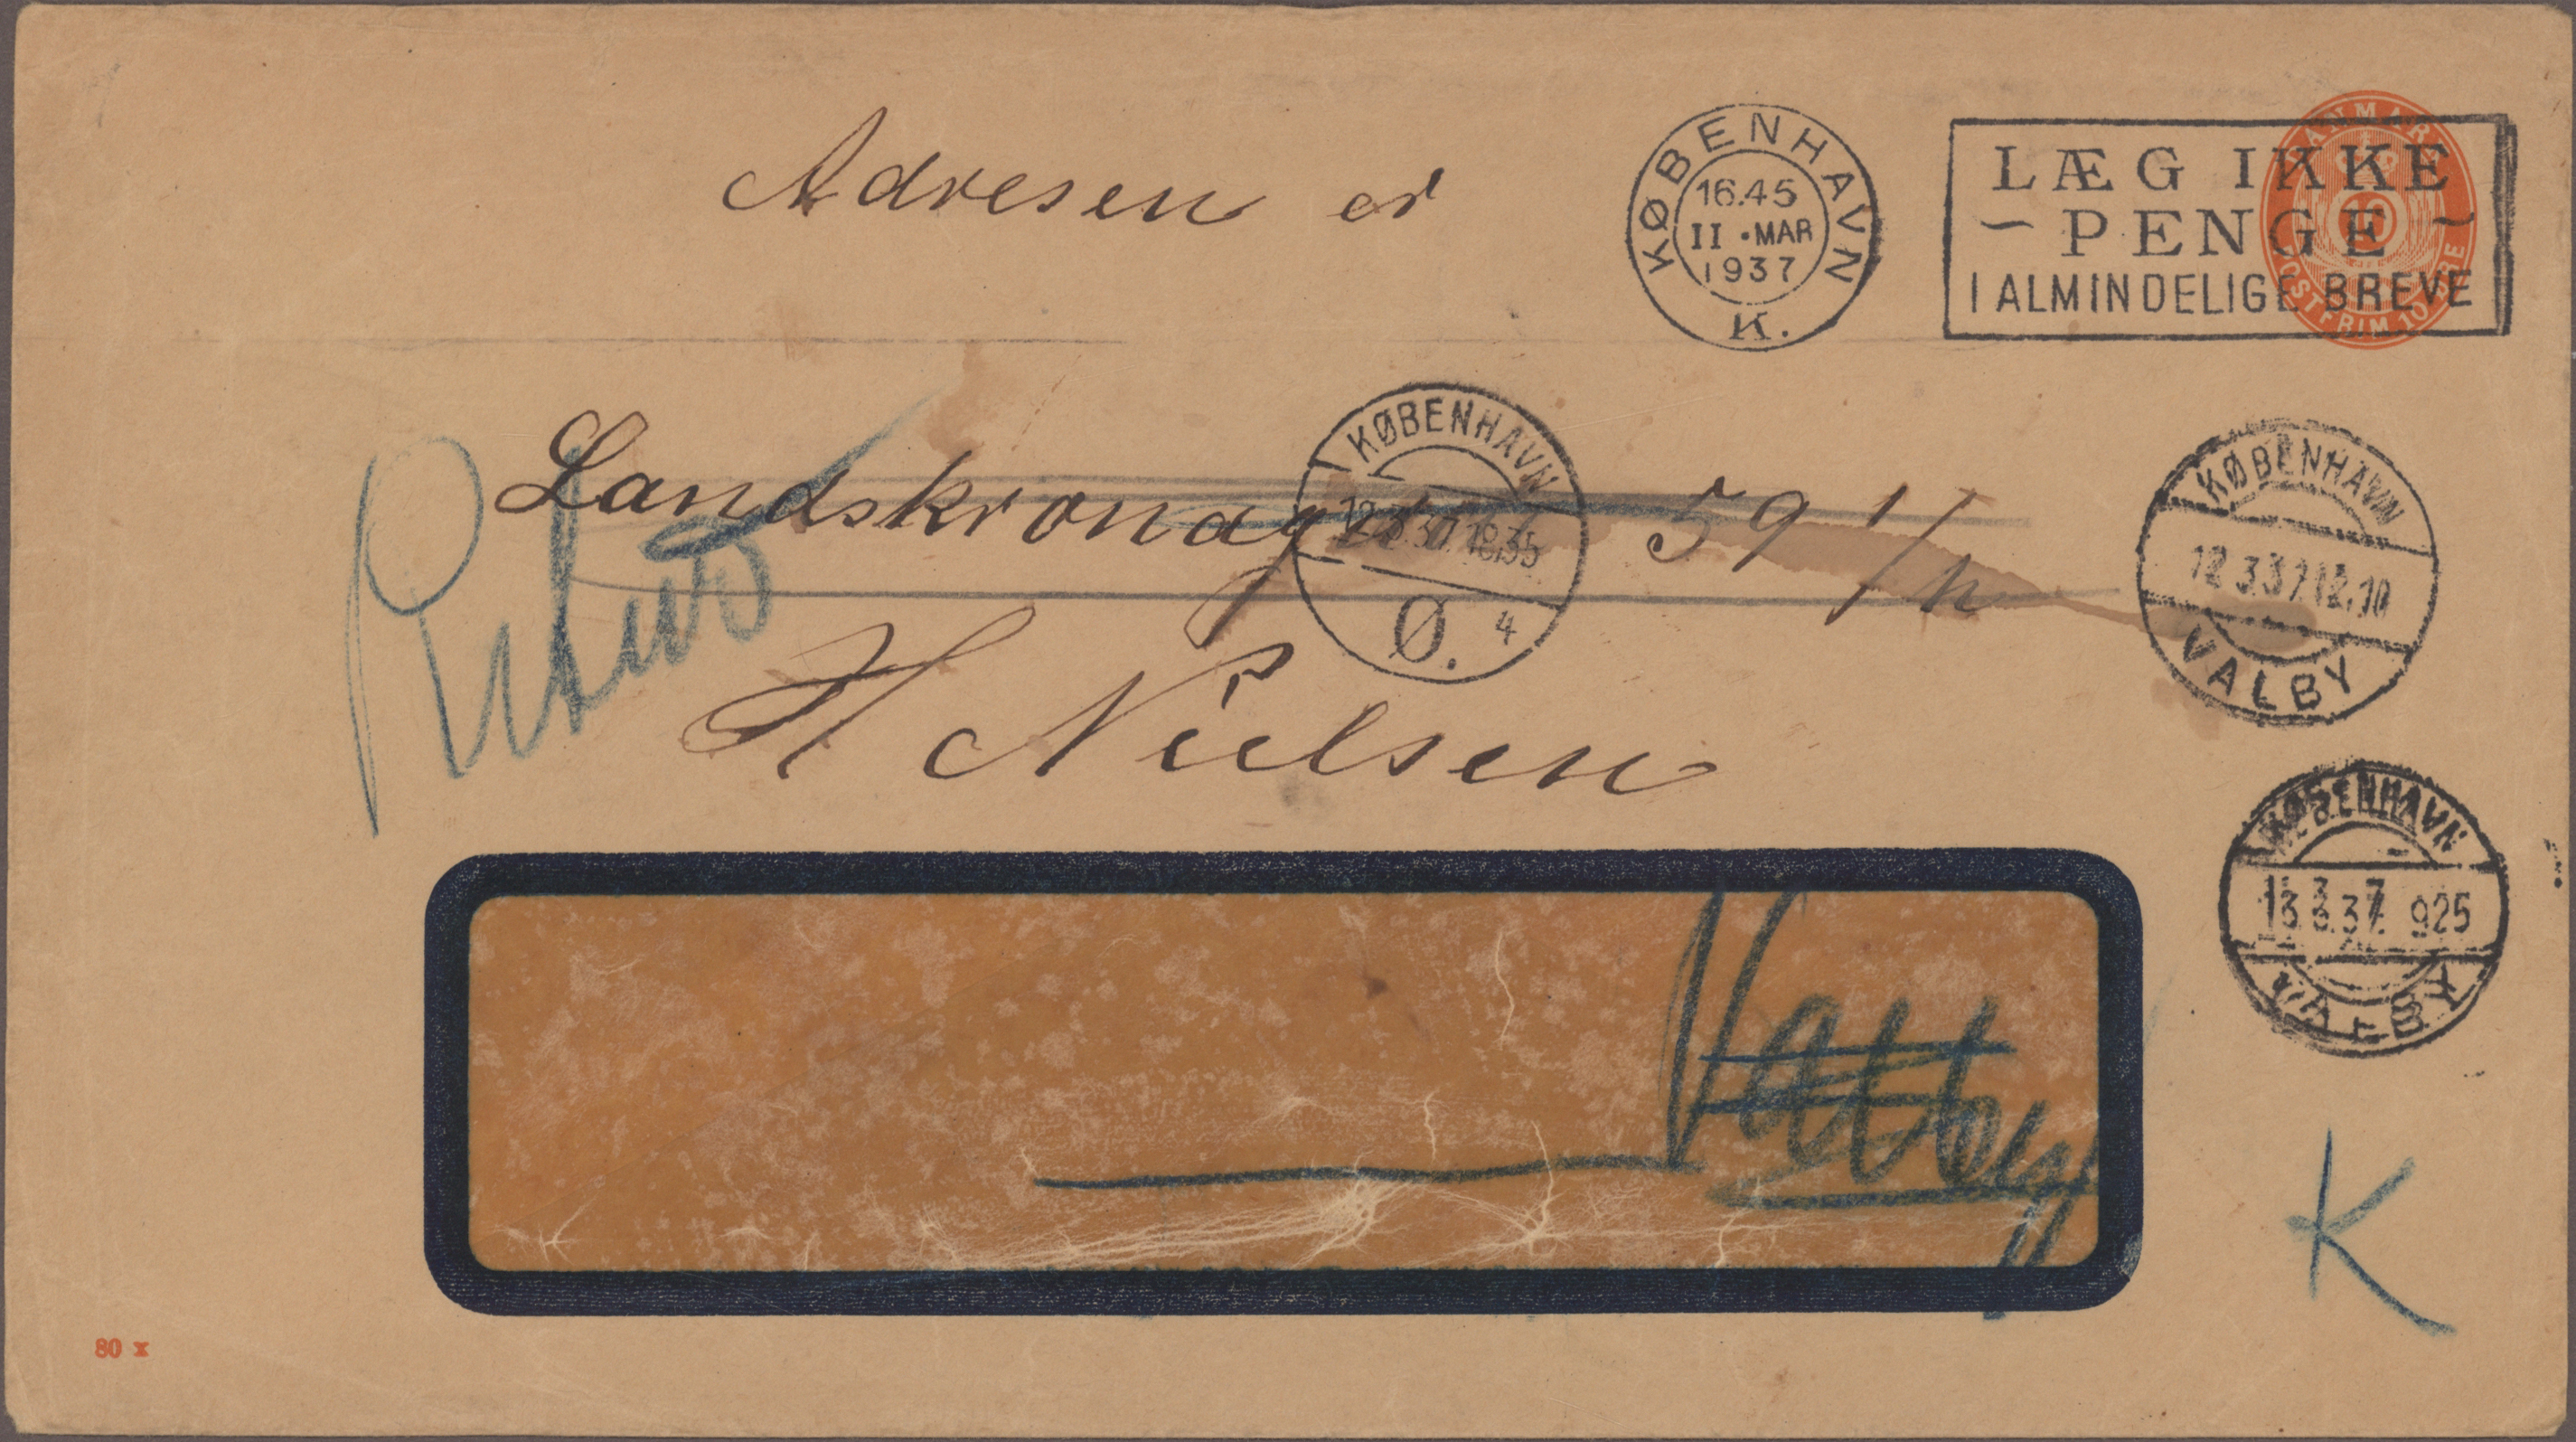 Adresen er
KØBENHAVN
16.45
II • MAR
1937
K.
LÆG IKKE
~ PENGE ~
I ALMINDELIGE BREVE
DANMARK
10
POSTFRIM 10 ØRE
Landskronag 59 1/h
KØBENHAVN
12.3.37.18,35
Ø. 4
KØBENHAVN
12.3.37.12,10
VALBY
Retur
H Nielsen
KØBENHAVN
13.3.37. 925
VALBY
Valby
K
80 x